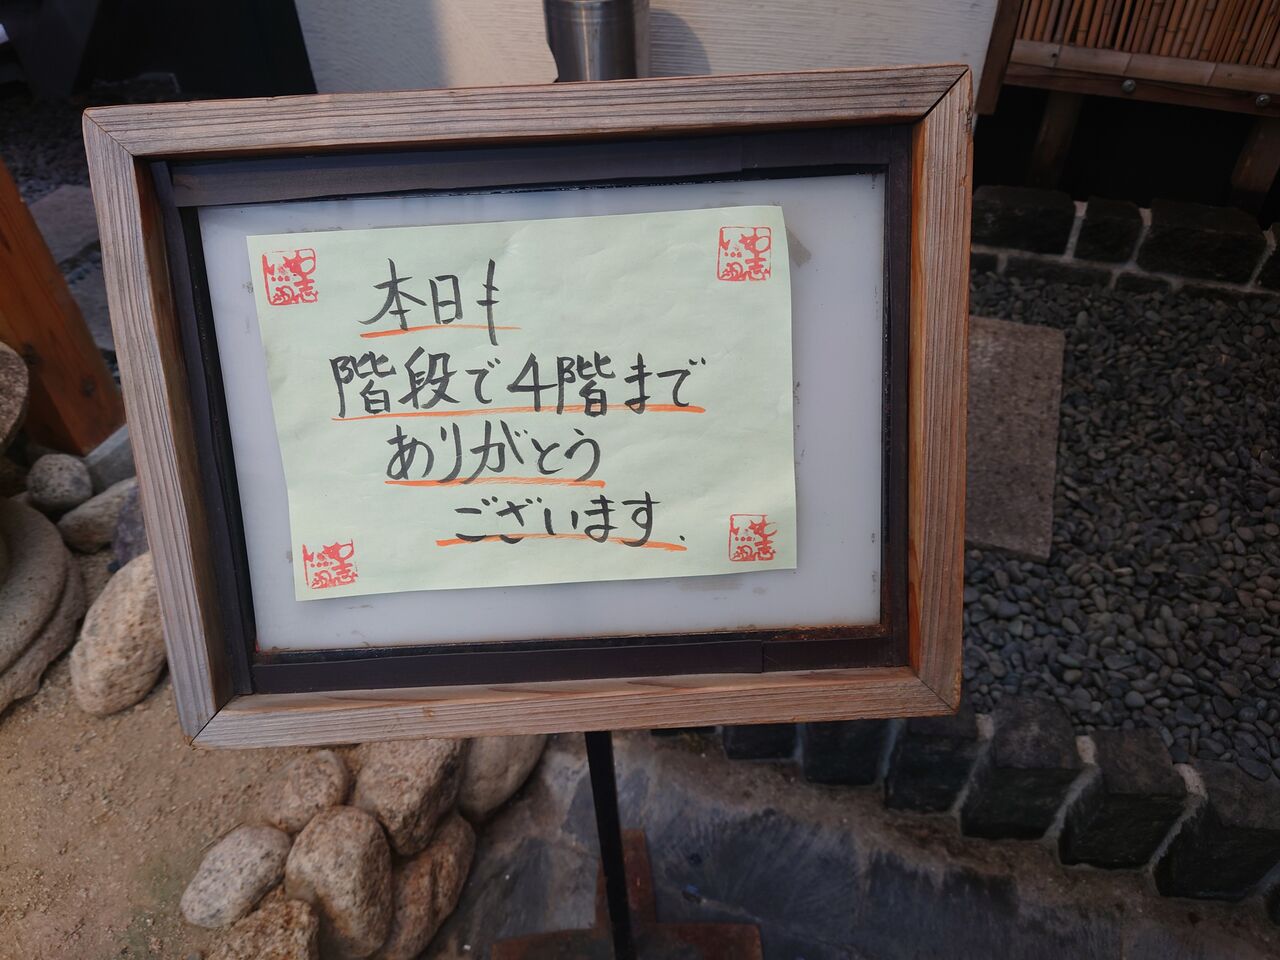 本日も
階段で4階まで
ありがとう
ございます.